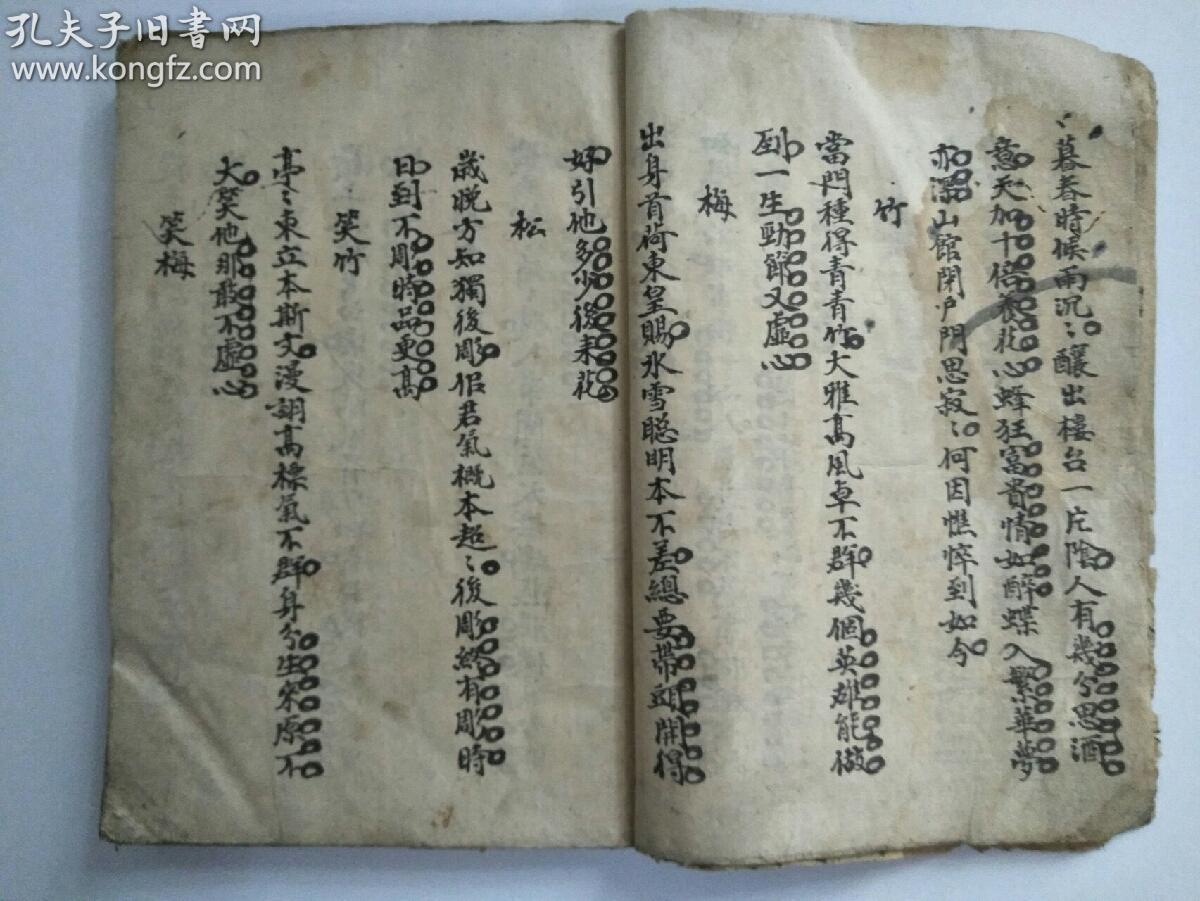 孔夫子旧书网
www.kongfz.com
〻暮春時候雨沉〻釀出樓台一片陰人有幾分思酒
意天加十倍養花心蜂狂富貴情如醉蝶入繁華夢
亦深山館閉戶閒思寂〻何因憔悴到如今
竹
當門種得青青竹大雅高風卓不群幾個英雄能做
到一生勁節又虛心
梅
出身首荷東皇賜氷雪聪明本不差總要帶頭開得
好引他多少後来花
松
歲晚方知獨後彫伹君氣概本超〻後彫終有彫時
日到不彫時品更高
笑竹
亭〻東立本斯文漫詡高標氣不群身分生來原不
大笑他那敢不虛心
笑梅